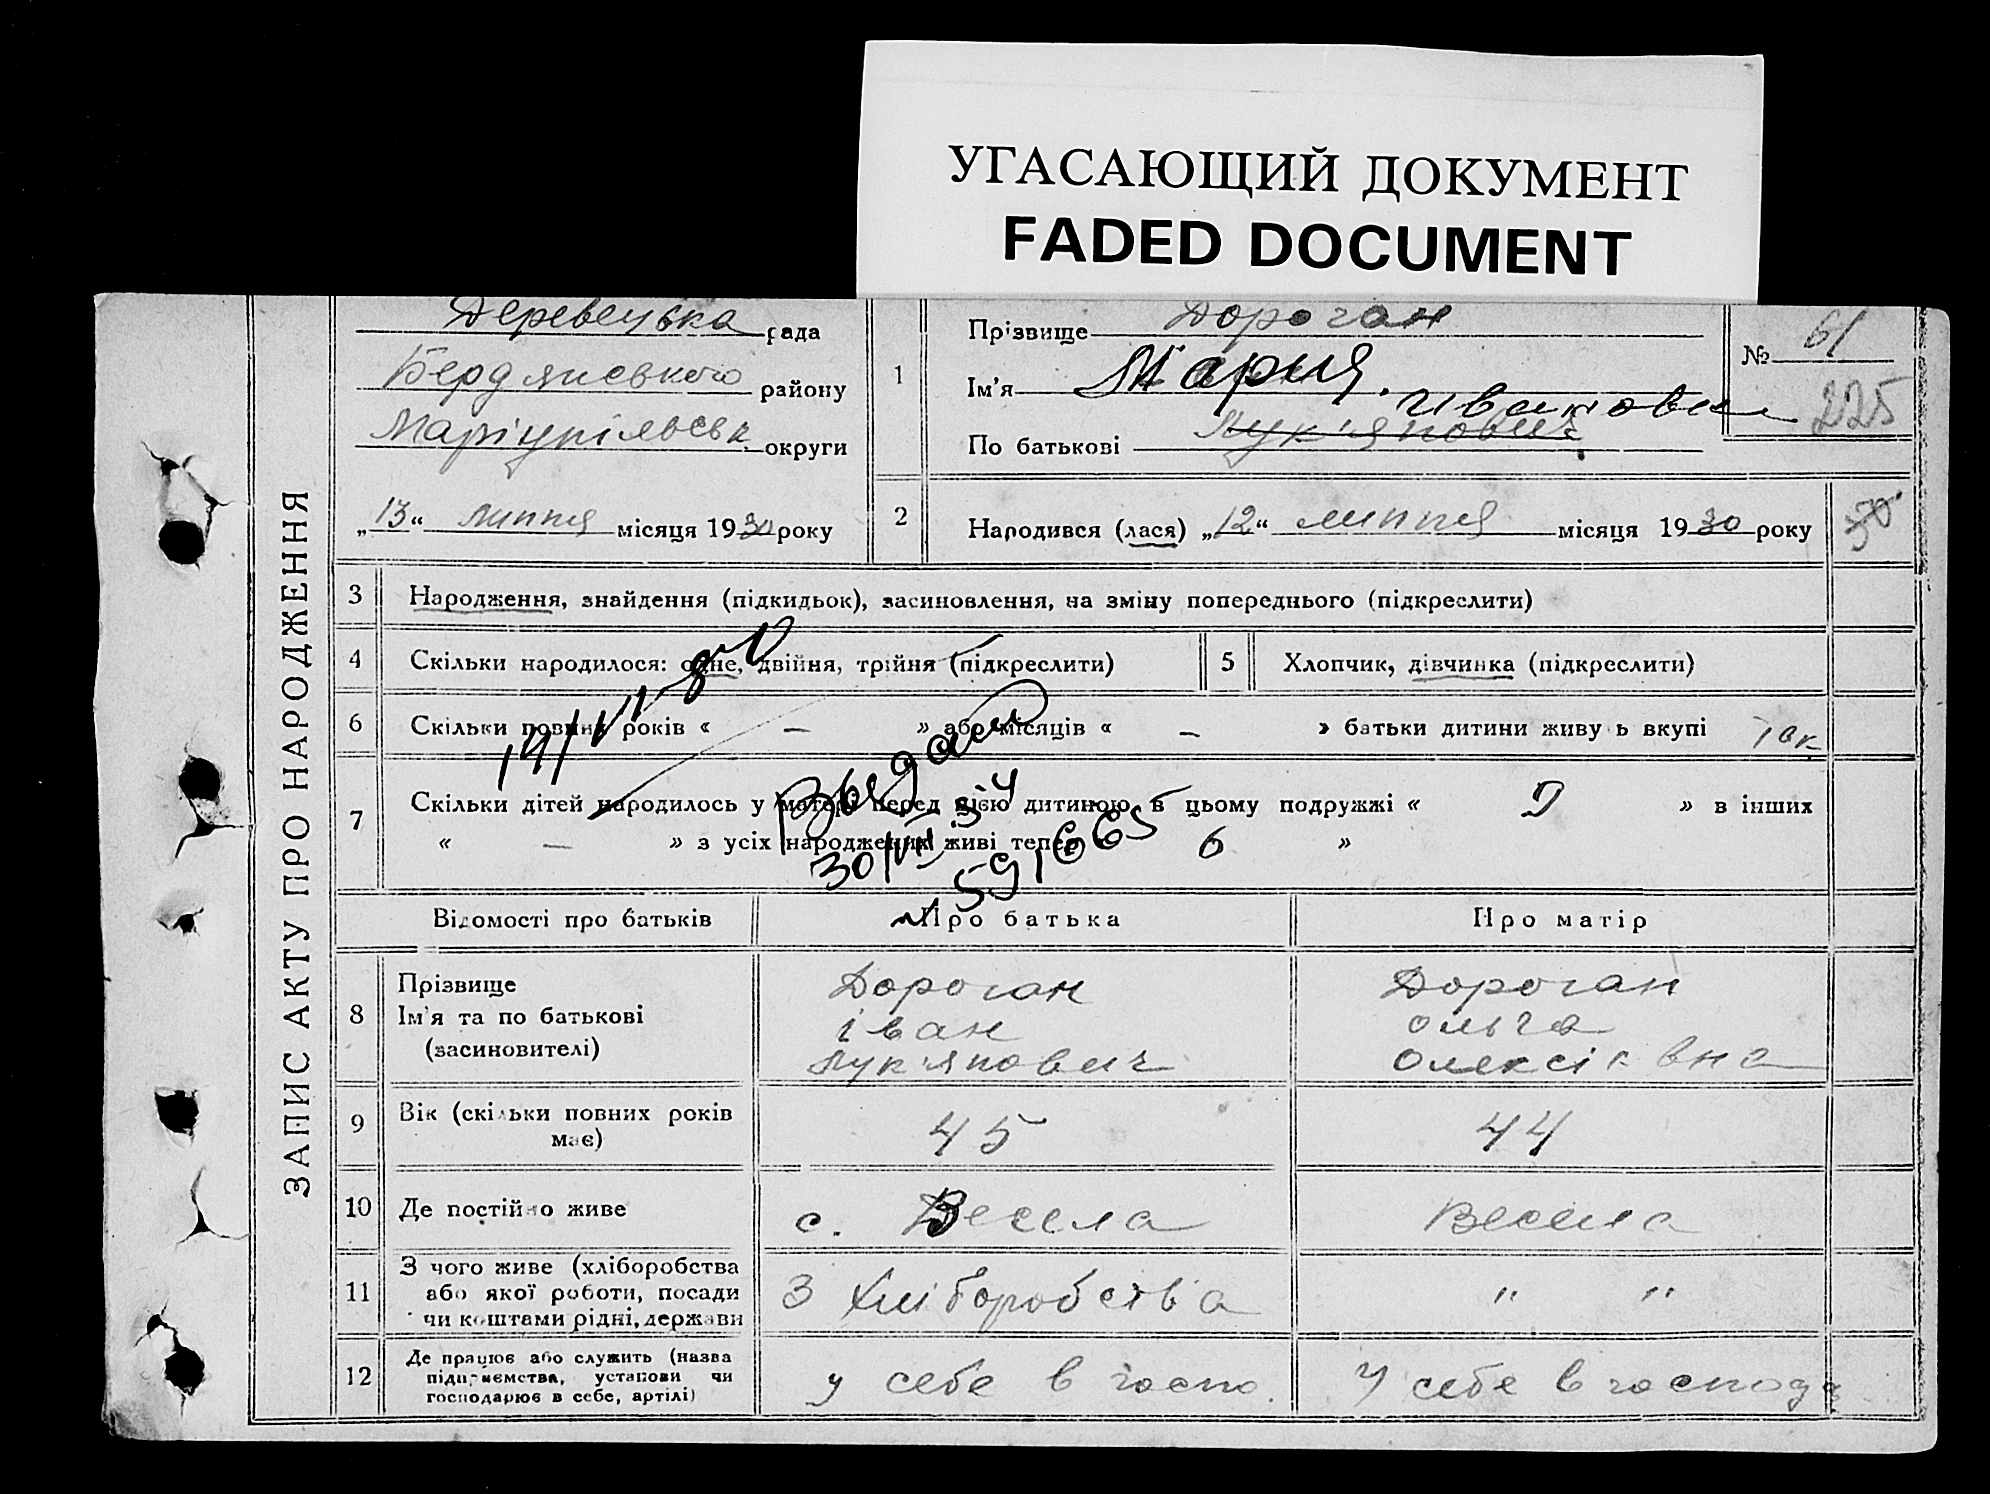 УГАСАЮЩИЙ ДОКУМЕНТ
FADED DOCUMENT
ЗАПИС АКТУ ПРО НАРОДЖЕННЯ
рада
Бердянського району
Маріупільськ. округи
„13“ липня місяця 1930 року
1
Прізвище Дороган
Ім'я Мария
Ивановна
По батькові Лук'янович
№ 61
225
2
Народився (лася) „12“ липня місяця 1930 року
3
Народження, знайдення (підкидьок), засиновлення, на зміну попереднього (підкреслити)
4
Скільки народилося: одне, двійня, трійня (підкреслити)
5
Хлопчик, дівчинка (підкреслити)
6
Скільки повних років « — » або місяців « — » батьки дитини живуть вкупі так
7
Скільки дітей народилось у матері перед цією дитиною в цьому подружжі « 9 » в інших
« — » з усіх народжених живі тепер 6 »
Відомості про батьків
Про батька
Про матір
8
Прізвище
Ім'я та по батькові
(засиновителі)
Дороган
іван
Лук'янович
Дороган
Ольга
Олексієвна
9
Вік (скільки повних років
має)
45
44
10
Де постійно живе
с. Весела
Весела
11
З чого живе (хліборобства
або якої роботи, посади
чи коштами рідні, держави
З хліборобства
" "
12
Де працює або служить (назва
підприємства, установи чи
господарює в себе, артілі)
у себе в госпо.
У себе в господ